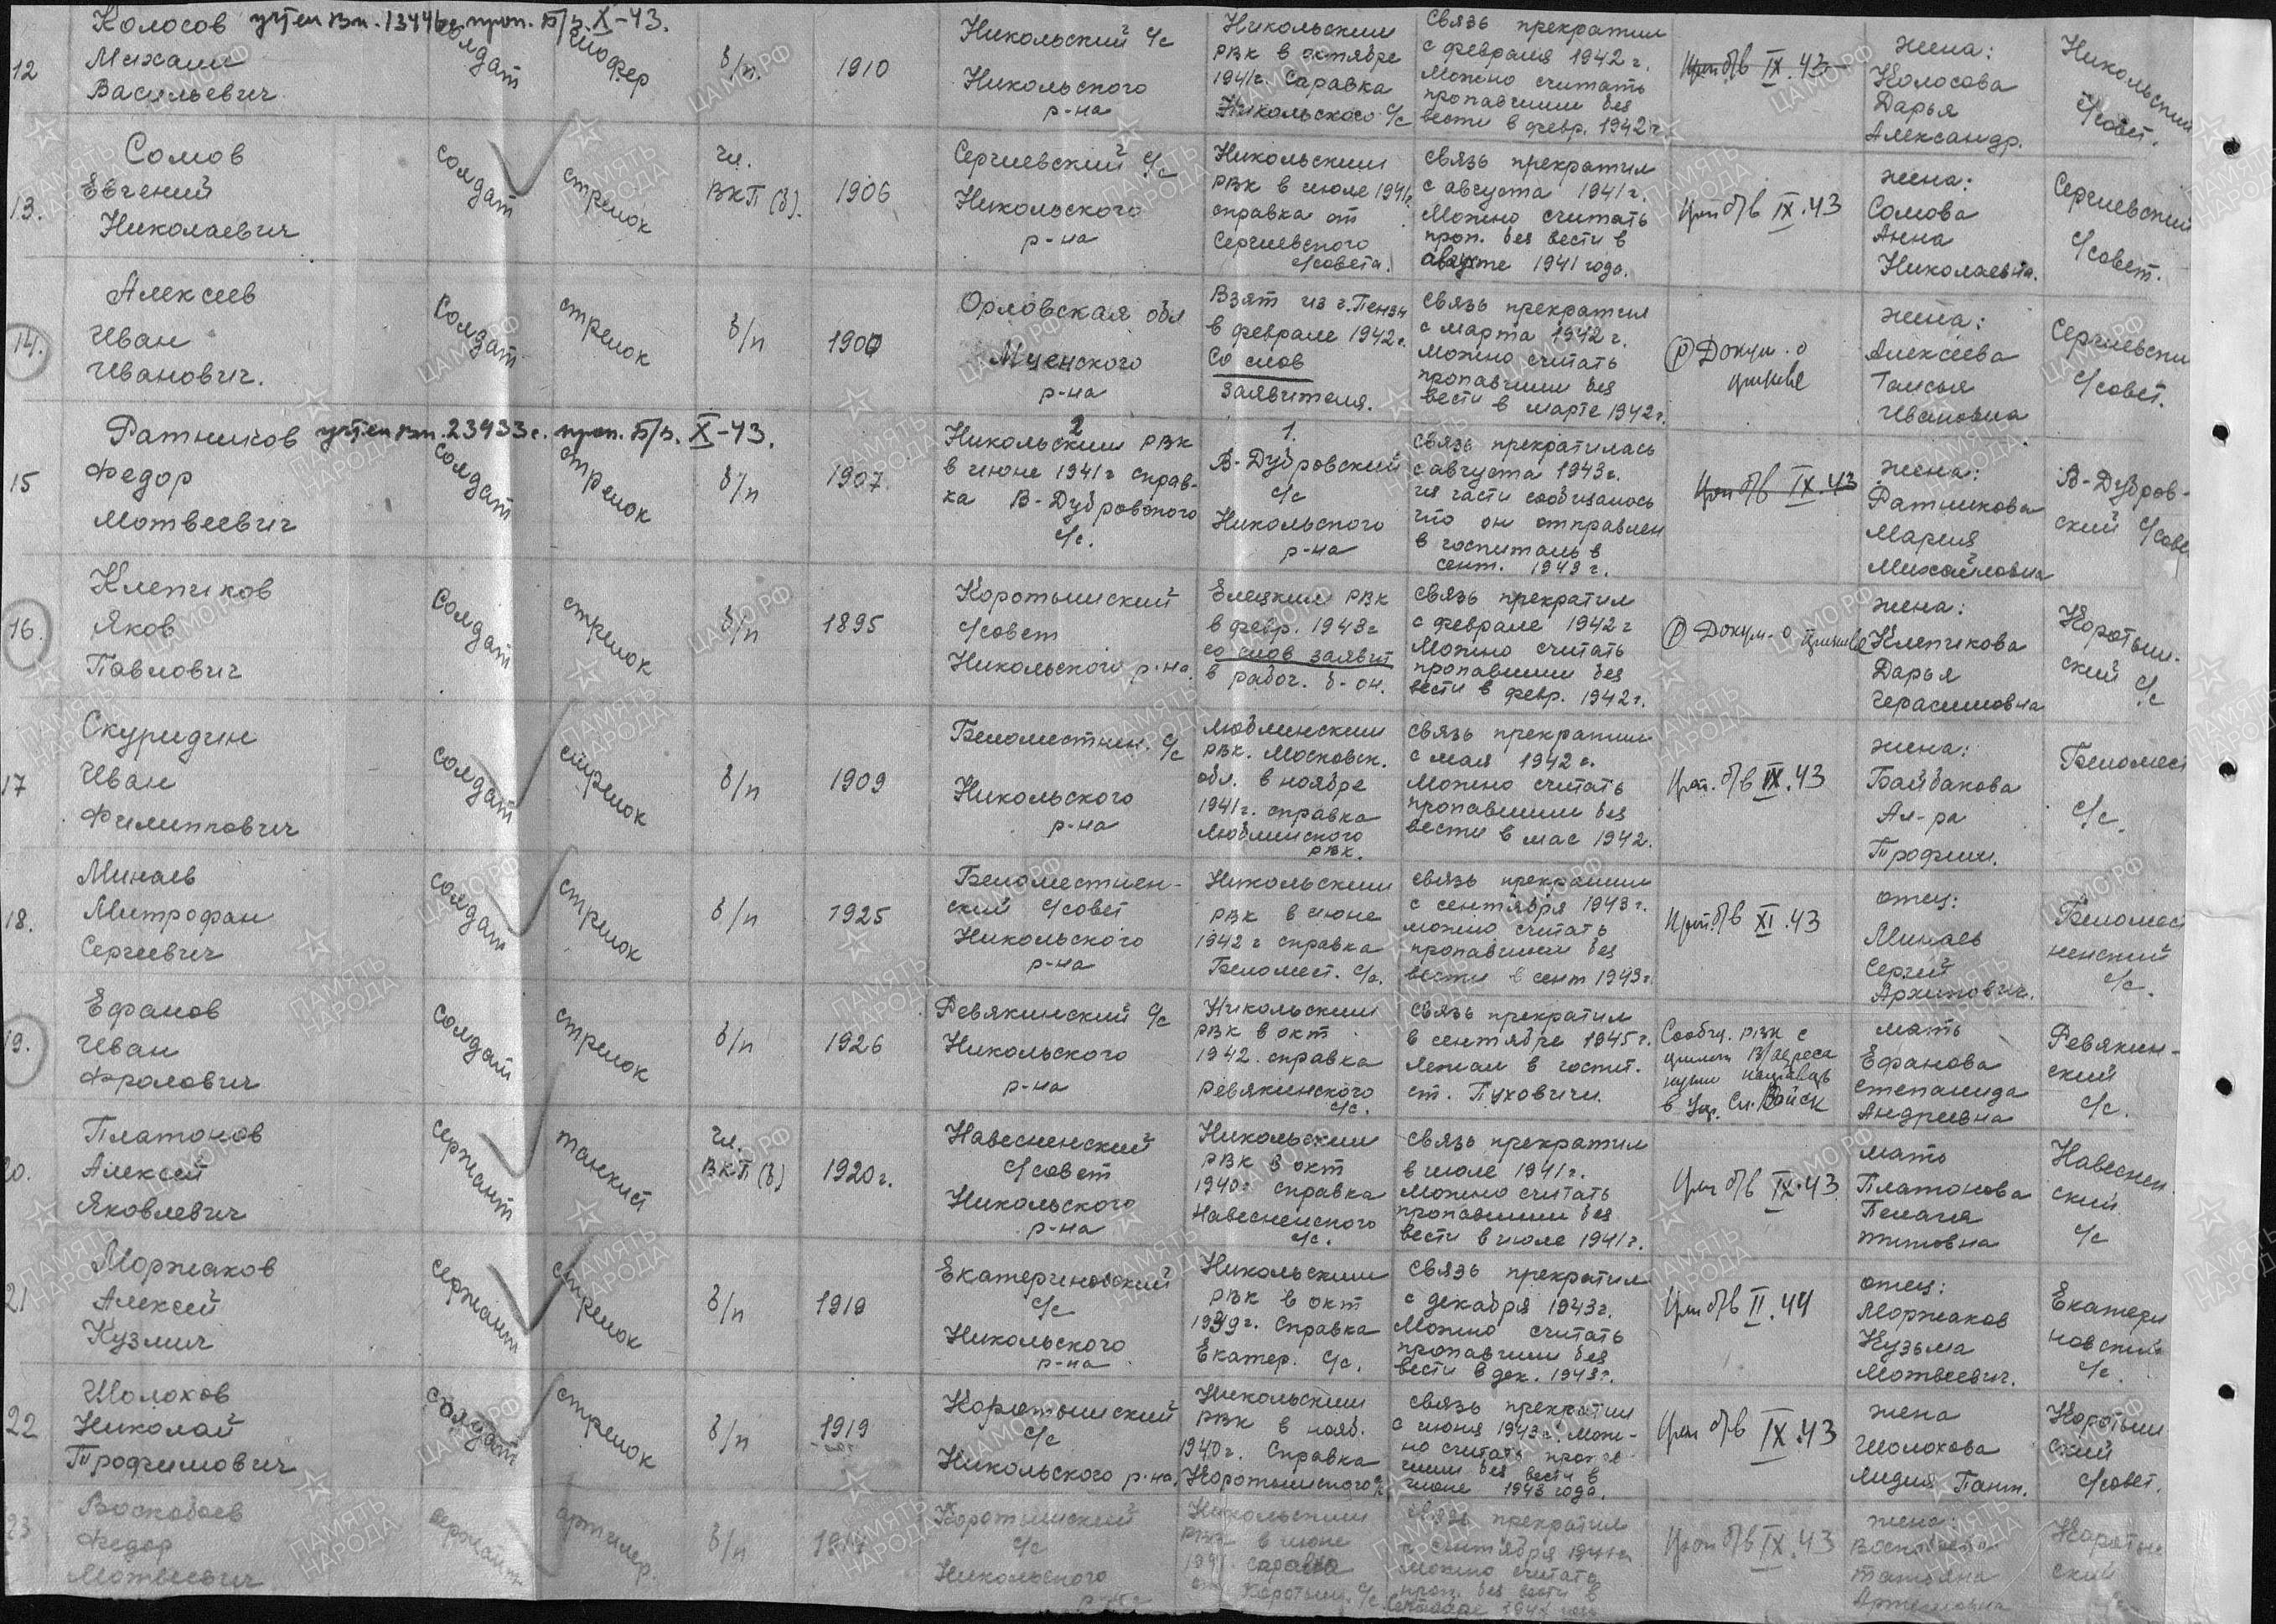 12
Колосов учтен вн. 13446с проп. Б/в. X-43.
Михаил
Васильевич
солдат
шофер
б/п.
1910
Никольский с/с
Никольского
р-на
Никольским
РВК в октябре
1941г. Справка
Никольского с/с
Связь прекратил
с февраля 1942 г.
Можно считать
пропавшим без
вести в февр. 1942 г.
Цпп б/в IX.43
жена:
Колосова
Дарья
Александр.
Никольский
с/совет.
13.
Сомов
Евгений
Николаевич
солдат
стрелок
чл.
ВКП(б).
1906
Сергиевский с/с
Никольского
р-на
Никольским
РВК в июле 1941г.
справка от
Сергиевского
с/совета.
связь прекратил
с августа 1941г.
Можно считать
проп. без вести в
августе 1941 года.
б/в IX.43
жена:
Сомова
Анна
Николаевна.
Сергиевский
с/совет.
14.
Алексеев
Иван
Иванович.
Солдат
стрелок
б/п
1900
Орловская обл
Мценского
р-на
Взят из г. Пензы
в феврале 1942г.
Со слов
заявителя.
связь прекратил
с марта 1942 г.
можно считать
пропавшим без
вести в марте 1942г.
Р Докум. о
призыве
жена:
Алексеева
Таисья
Ивановна
Сергиевский
с/совет.
15
Ратников учтен вн. 23933с. проп. Б/в. X-43.
Федор
Мотвеевич
солдат
стрелок
б/п
1907
2
Никольским РВК
в июне 1941г справ-
ка В-Дубровского
с/с.
1.
В-Дубровский
с/с
Никольского
р-на
связь прекратилась
с августа 1943г.
из части сообщалось
что он отправлен
в госпиталь в
сент. 1943 г.
б/в IX.43
жена:
Ратникова
Мария
Михайловна
В-Дубров-
ский с/сове
16.
Клепиков
Яков
Павлович
Солдат
стрелок
б/п
1895
Коротышский
с/совет
Никольского р-на.
Елецким РВК
в февр. 1943г
со слов заявит
в рабоч. б-он.
связь прекратил
с феврале 1942 г
Можно считать
пропавшим без
вести в февр. 1942г.
Р Докум. о призыве
жена:
Клепикова
Дарья
Герасимовна
Коротыш-
ский с/с
17
Скуридин
Иван
Филиппович
солдат
стрелок
б/п
1909
Беломестнен. с/с
Никольского
р-на
Люблинским
РВК. Московск.
обл. в ноябре
1941г. справка
Люблинского
РВК.
связь прекратил
с мая 1942 г.
Можно считать
пропавшим без
вести в мае 1942.
б/в IX.43
жена:
Байбакова
Ал-ра
Трофим.
Беломест
с/с.
18.
Минаев
Митрофан
Сергеевич
солдат
стрелок
б/п
1925
Беломестнен-
ский с/совет
Никольского
р-на
Никольским
РВК в июне
1942 г справка
Беломест. с/с.
связь прекратил
с сентября 1943 г.
можно считать
пропавшим без
вести в сент 1943г.
б/в XI.43
отец:
Минаев
Сергей
Архипович.
Беломест
ненский
с/с.
19.
Ефанов
Иван
Фролович
солдат
стрелок
б/п
1926
Ревякинский с/с
Никольского
р-на
Никольским
РВК в окт
1942. справка
Ревякинского
с/с.
связь прекратил
в сентябре 1945г.
лежал в госпит.
ст. Пуховичи.
Сообщ. РВК с
адреса
в Упр. Сл. Войск
мать
Ефанова
Степанида
Андреевна
Ревякин-
ский
с/с.
20.
Платонов
Алексей
Яковлевич
сержант
танкист
чл.
ВКП(б)
1920г.
Навесненский
с/совет
Никольского
р-на
Никольским
РВК в окт
1940г справка
Навесненского
с/с.
связь прекратил
в июле 1941г.
Можно считать
пропавшим без
вести в июле 1941г.
б/в IX.43
мать
Платонова
Пелагия
Титовна
Навеснен
ский
с/с
21
Моржаков
Алексей
Кузмич
сержант
стрелок
б/п
1919
Екатериновский
с/с
Никольского
р-на
Никольским
РВК в окт
1939г. справка
Екатер. с/с.
связь прекратил
с декабря 1943г.
Можно считать
пропавшим без
вести в дек. 1943г.
б/в II.44
отец:
Моржаков
Кузьма
Мотвеевич.
Екатери
новский
с/с.
22
Шолохов
Николай
Трофимович
солдат
стрелок
б/п
1919
Коротышский
с/с
Никольского р-на.
Никольским
РВК в нояб.
1940г. Справка
Коротышского с/с
связь прекратил
с июня 1943г. Мож-
но считать пропав
шим без вести в
июне 1943 года.
б/в IX.43
жена
Шолохова
Лидия Пант.
Коротыш
ский
с/совет.
23
Воскобоев
Федор
Мотвеевич
сержант
артилер.
б/п
Коротышский
с/с
Никольского
р-на
Никольским
РВК в июне
справка
Коротыш. с/с
связь прекратил
с сентября 1941г
можно считать
проп. без вести в
сентябре 1941 года
б/в IX.43
жена:
Татьяна
Артемовна
Коротыш
ский